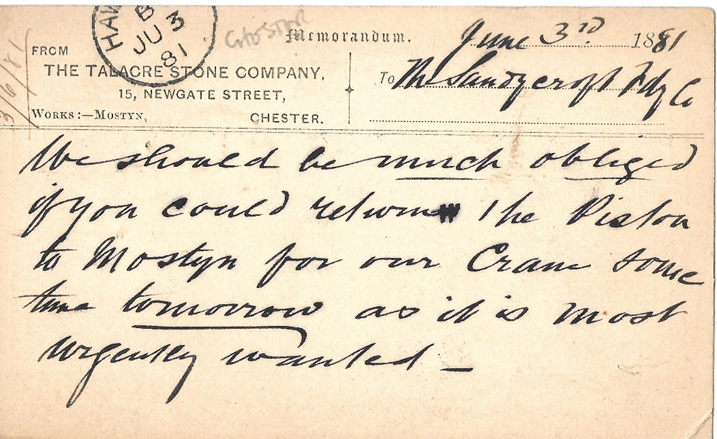 HAW
B
JU 3
81
Memorandum.
June 3rd 1881
FROM
THE TALACRE STONE COMPANY,
15, NEWGATE STREET,
WORKS:—MOSTYN, CHESTER.
To The Sandycroft Fdy Co
3/6/81
We should be much obliged
if you could return the Piston
to Mostyn for our Crane some
time tomorrow as it is most
urgently wanted —